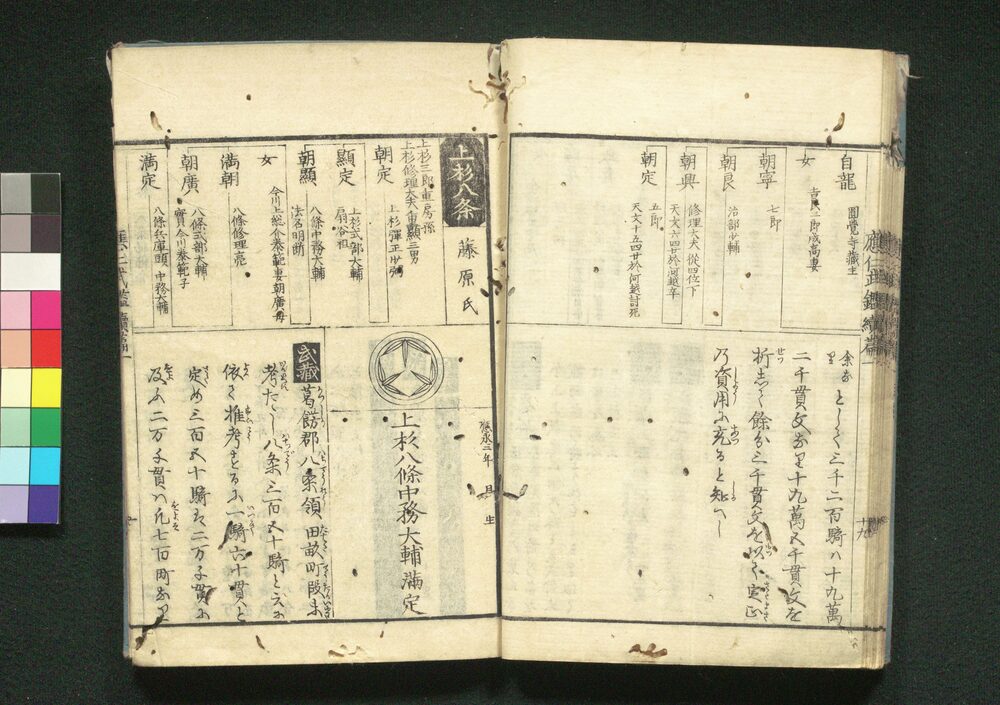 自龍
圓覺寺藏主
女
吉良三郎成高妻
朝寧
七郎
朝良
治部少輔
朝興
修理大夫 從四位下
天文六四廿於河越卒
朝定
五郎
天文十五四廿於河越討死
三千二百騎ハ十九萬
二千貫文
十九萬五千貫文を
餘分三千貫文を以
乃資用ふ充ると知へし
應仁武鑑 續篇一
十九
上杉八条
藤原氏
上杉三郎重房孫
上杉修理大夫重顯三男
朝定
上杉彈正少弼
顯定
上杉式部大輔
扇谷祖
朝顯
八條中務大輔
法名明
女
今川上總介泰範妻朝廣母
満朝
八條修理亮
朝廣
八條式部大輔
實今川泰範子
満定
八條兵庫頭 中務大輔
應永三年 生
上杉八條中務大輔満定
武藏
葛餝郡八条領田畝町段未
考八条三百五十騎と
依て推考するふ一騎六十貫と
定め三百五十騎ハ二万千貫
及ふ二万千貫ハ凡七百町